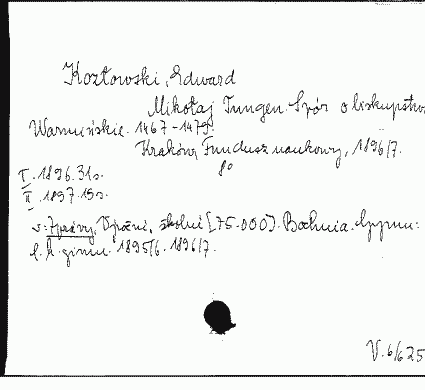 Kozłowski, Edward
Mikołaj Tungen. Spór o biskupstwo
Warmińskie. 1467-1479.
Kraków, Fundusz naukowy, 1896/7.
8°
I. 1896. 31 s.
II. 1897. 19 s.
v: Zprávy, Výroční, školní [75.000]. Bochnia. Gymn:
C. k. gimn. 1895/6. 1896/7.
V. 6/625